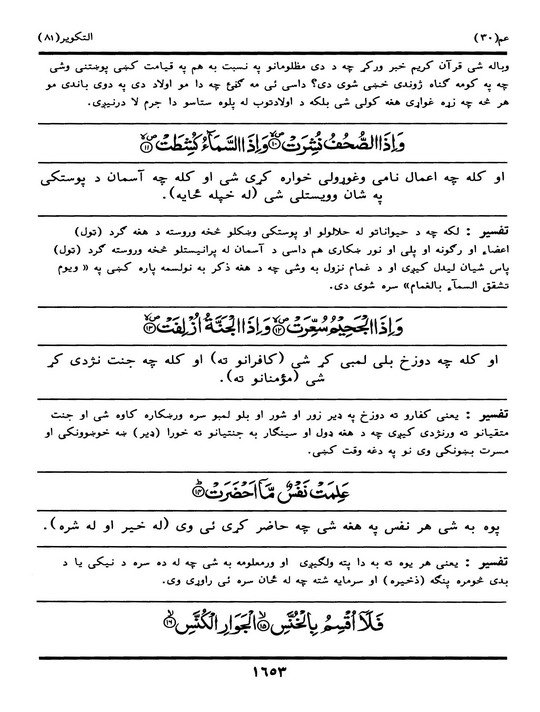 عم(۳۰) التکویر(۸۱)
وباله شی قرآن کریم خبر ورکړ چه د دی مظلومانو په نسبت به هم په قیامت کښی پوښتنی وشی
چه په کومه گناه ژوندی خښی شوی دی؟ داسی ئی مه گڼئ چه دا مو اولاد دی په دوی باندی مو
هر څه چه زړه غواړی هغه کولی شی بلکه د اولادتوب له پلوه ستاسو دا جرم لا درنیږی.
وَإِذَا الصُّحُفُ نُشِرَتْ ۝۱۰ وَإِذَا السَّمَآءُ كُشِطَتْ ۝۱۱
او کله چه اعمال نامی وغوړولی خواره کړی شی او کله چه آسمان د پوستکی
په شان وویستلی شی (له خپله ځایه).
تفسیر : لکه چه د حیواناتو له حلالولو او پوستکی وښکلو څخه وروسته د هغه گرد (ټول)
اعضاء او رگونه او پلی او نور ښکاری هم داسی د آسمان له پرانیستلو څخه وروسته گرد (ټول)
پاس شیان لیدل کیږی او د غمام نزول به وشی چه د هغه ذکر به نولسمه پاره کښی په « ویوم
تشقق السمآء بالغمام» سره شوی دی.
وَإِذَا الْجَحِيْمُ سُعِّرَتْ ۝۱۲ وَإِذَا الْجَنَّةُ أُزْلِفَتْ ۝۱۳
او کله چه دوزخ بلی لمبی کړ شی (کافرانو ته) او کله چه جنت نژدی کړ
شی (مؤمنانو ته).
تفسیر : یعنی کفارو ته دوزخ په ډیر زور او شور او بلو لمبو سره ورښکاره کاوه شی او جنت
متقیانو ته ورنژدی کیږی چه د هغه ډول او سینگار به جنتیانو ته خورا (ډیر) ښه خوښوونکی او
مسرت بښونکی وی نو په دغه وقت کښی.
عَلِمَتْ نَفْسٌ مَّا أَحْضَرَتْ ۝۱۴
پوه به شی هر نفس په هغه شی چه حاضر کړی ئی وی (له خیر او له شره).
تفسیر : یعنی هر یوه ته به دا پته ولگیږی او ورمعلومه به شی چه له ده سره د نیکی یا د
بدی څومره پنگه (ذخیره) او سرمایه شته چه له ځان سره ئی راوړی وی.
فَلَآ أُقْسِمُ بِالْخُنَّسِ ۝۱۵ الْجَوَارِ الْكُنَّسِ ۝۱۶
۱۶۵۳